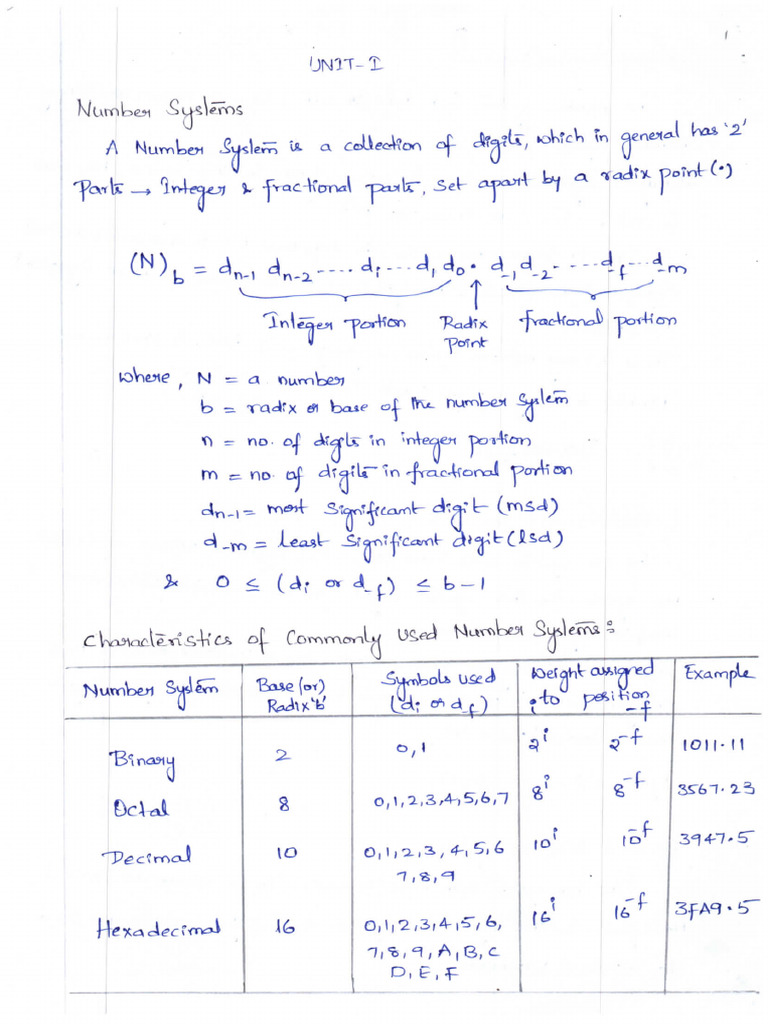 1
UNIT-I
Number Systems
A Number System is a collection of digits, which in general has '2'
Parts → Integer & fractional parts, set apart by a radix point (.)
(N)b = dn-1 dn-2 ---- di --- d1 d0 . d-1 d-2 ---- d-f --- d-m
Integer portion Radix Point fractional portion
where, N = a number
b = radix or base of the number system
n = no. of digits in integer portion
m = no. of digits in fractional portion
dn-1 = most significant digit (msd)
d-m = least significant digit (lsd)
& 0 ≤ (di or d-f) ≤ b-1
Characteristics of Commonly Used Number Systems:
Number System | Base (or) Radix 'b' | Symbols used (di or df) | Weight assigned to position i -f | Example
Binary | 2 | 0,1 | 2^i 2^-f | 1011.11
Octal | 8 | 0,1,2,3,4,5,6,7 | 8^i 8^-f | 3567.23
Decimal | 10 | 0,1,2,3,4,5,6 | 10^i 10^-f | 3947.5
7,8,9
Hexadecimal | 16 | 0,1,2,3,4,5,6, | 16^i 16^-f | 3FA9.5
7,8,9,A,B,C
D,E,F